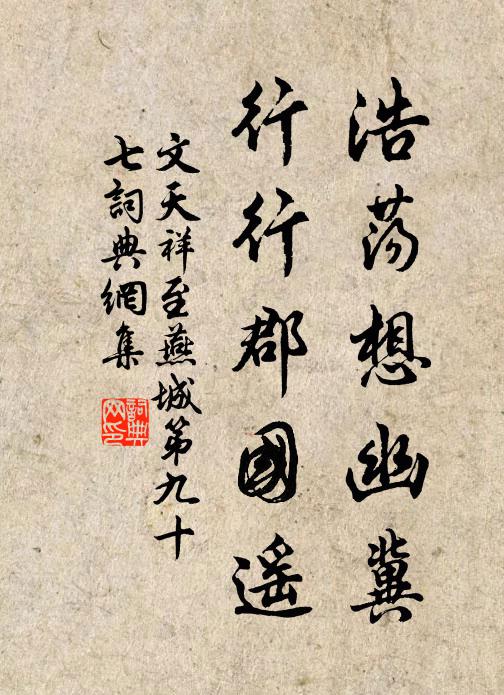 浩荡想幽冀
行行郡國遥
文天祥至燕城第九十
七詞典網集
詞典网印